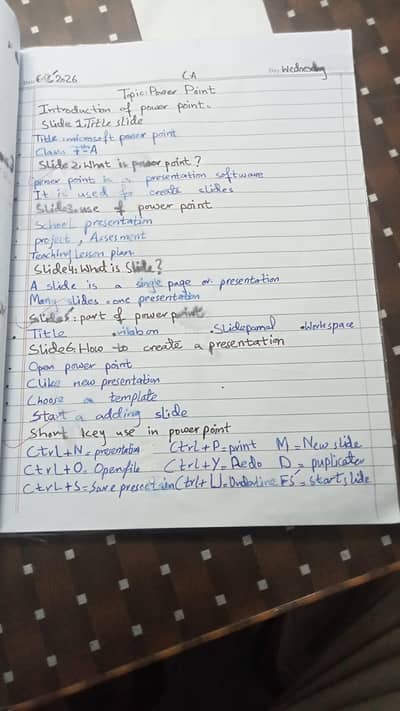 2026 CA Day: Wednesday
Topic: Power Point
Introduction of power point.
Slide 1. Title slide
Title: microsoft power point
Class 7th-A
Slide 2. What is power point?
power point is a presentation software
It is used for create slides
Slide 3: use of power point
School presentation
project, Assesment
Teaching Lesson plan
Slide 4: What is Slide?
A slide is a single page of presentation
Many slides = one presentation
Slide 5: part of power point
• Title • Ribbon • Slide panal • Workspace
Slide 6: How to create a presentation
Open power point
Click new presentation
Choose a template
Start a adding slide
Short key use in power point
Ctrl+N = presentation Ctrl+P = print M = New slide
Ctrl+O = Open file Ctrl+Y = Redo D =
Ctrl+S = Save Ctrl+U = F5 = start slide